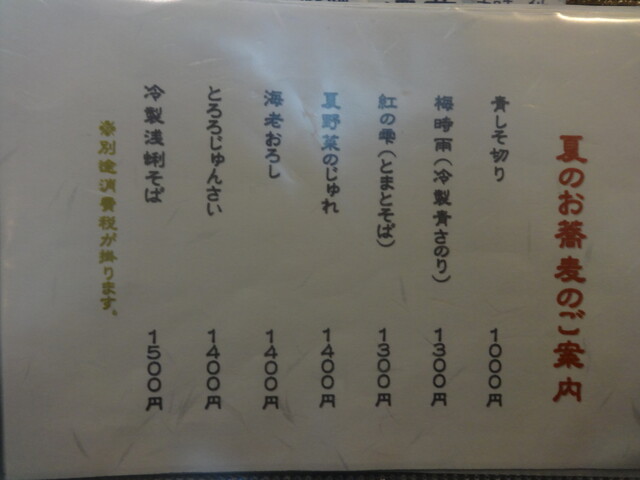 夏のお蕎麦のご案内
青しそ切り 1000円
梅時雨(冷製青さのり) 1300円
紅の雫(とまとそば) 1300円
夏野菜のじゅれ 1400円
海老おろし 1400円
とろろじゅんさい 1400円
冷製浅蜊そば 1500円
※別途消費税が掛ります。